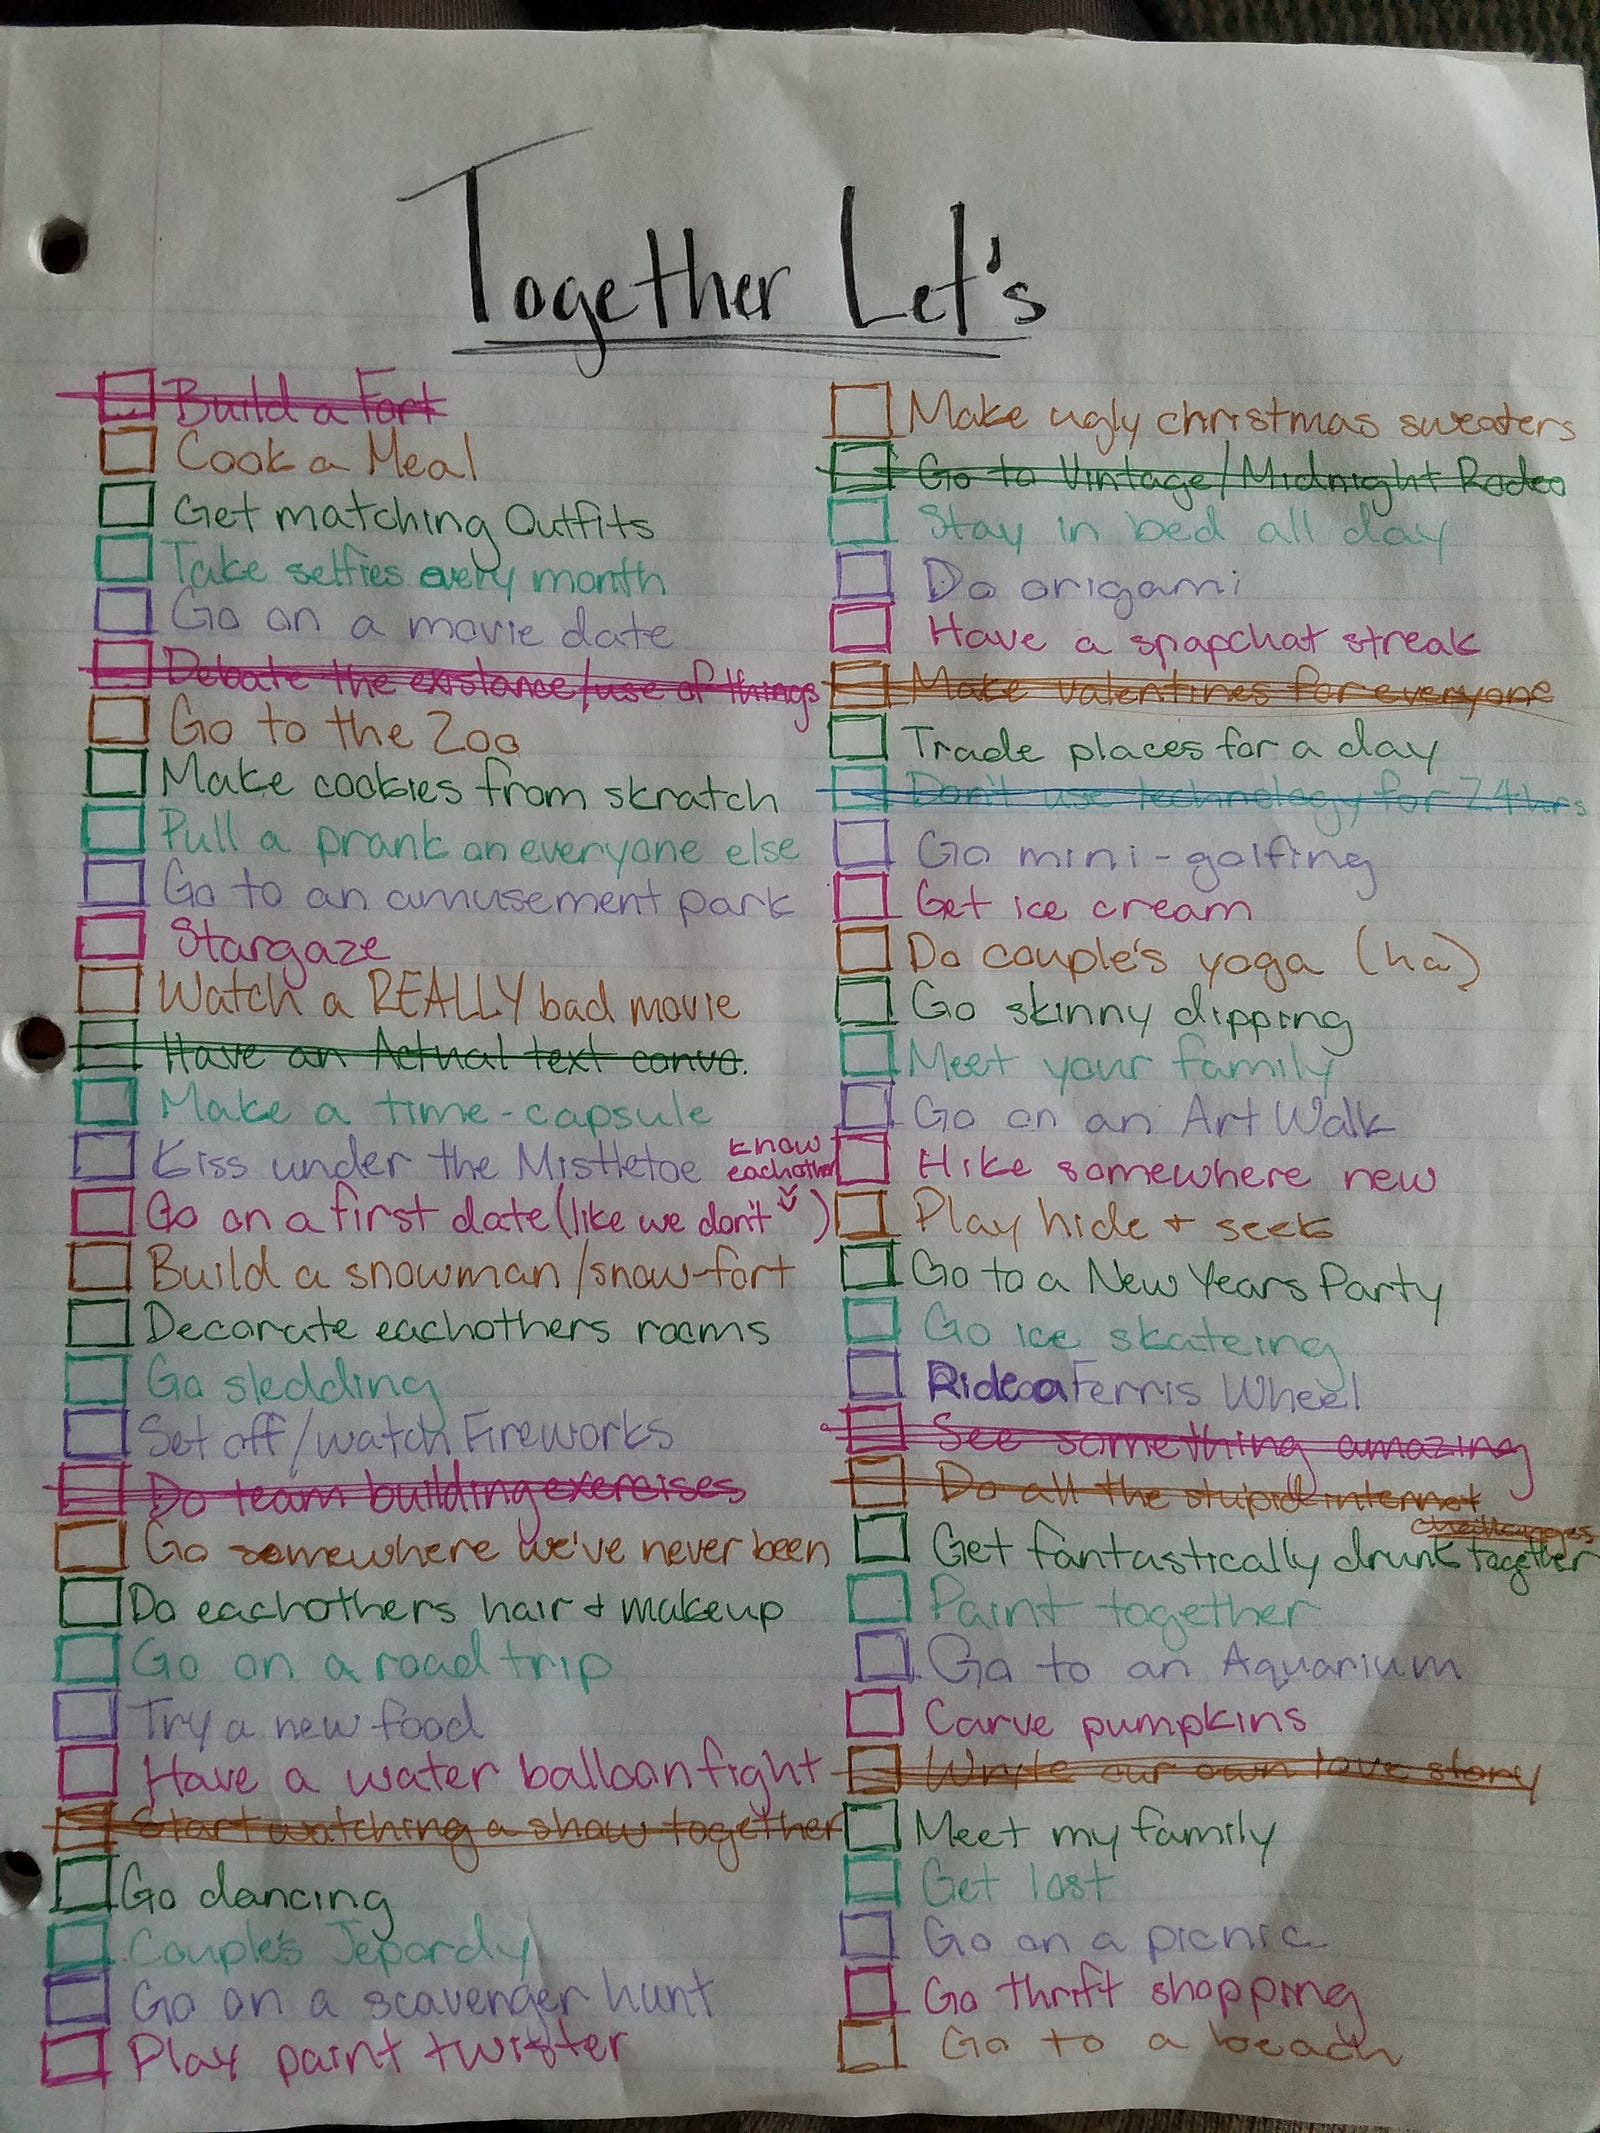 Together Let's
Build a Fort
Cook a Meal
Get matching Outfits
Take selfies every month
Go on a movie date
Debate the existance/use of things
Go to the Zoo
Make cookies from skratch
Pull a prank on everyone else
Go to an amusement park
Stargaze
Watch a REALLY bad movie
Have an Actual text convo.
Make a time-capsule
Kiss under the Mistletoe
know
eachother
Go on a first date (like we don't )
Build a snowman/snow-fort
Decorate eachothers rooms
Go sledding
Set off/watch Fireworks
Do team building exercises
Go somewhere we've never been
Do eachothers hair + makeup
Go on a road trip
Try a new food
Have a water balloon fight
Start watching a show together
Go dancing
Couple's Jepardy
Go on a scavenger hunt
Play paint twister
Make ugly christmas sweaters
Go to Vintage/Midnight Rodeo
Stay in bed all day
Do origami
Have a snapchat streak
Make valentines for everyone
Trade places for a day
Don't use technology for 24hrs
Go mini-golfing
Get ice cream
Do couple's yoga (ha)
Go skinny dipping
Meet your family
Go on an Art Walk
Hike somewhere new
Play hide + seek
Go to a New Years Party
Go ice skateing
Ride a Ferris Wheel
See something amazing
Do all the stupid internet
challenges
Get fantastically drunk together
Paint together
Go to an Aquarium
Carve pumpkins
Write our own love story
Meet my family
Get lost
Go on a picnic
Go thrift shopping
Go to a beach